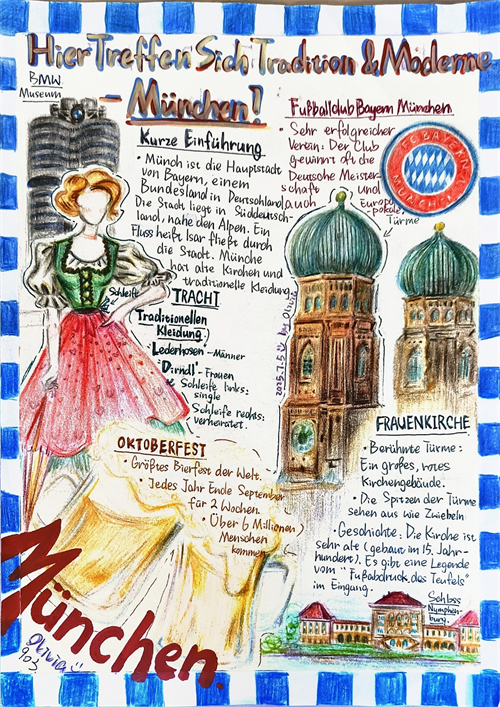 Hier Treffen Sich Tradition & Moderne
- München!
BMW
Museum
Kurze Einführung
• Münch ist die Hauptstadt
von Bayern, einem
Bundesland in Deutschland
Die Stadt liegt in Süddeutsch-
land, nahe den Alpen. Ein
Fluss heißt Isar fließt durch
die Stadt. Münche
hat alte Kirchen und
traditionelle Kleidung.
Fußballclub Bayern München
• Sehr erfolgreicher
Verein: Der Club
gewinnt oft die
Deutsche Meister-
schaft und
auch Europa-
pokale.
FC BAYERN
MÜNCHEN
Türme
Schleife
TRACHT
Traditionellen
Kleidung
Lederhosen - Männer
"Dirndl" - Frauen
Schleife links:
single
Schleife rechts:
verheiratet.
2025.7.5 by Olivia
OKTOBERFEST
• Größtes Bierfest der Welt.
• Jedes Jahr Ende September
für 2 Wochen.
• Über 6 Millionen
Menschen
kommen
FRAUENKIRCHE
• Berühmte Türme:
Ein großes, rotes
Kirchengebäude.
• Die Spitzen der Türme
sehen aus wie Zwiebeln
• Geschichte: Die Kirche ist
sehr alt (gebaut im 15. Jahr-
hundert). Es gibt eine Legende
vom "Fußabdruck des Teufels"
im Eingang.
Schloss
Nymphen-
burg.
München.
Olivia
903